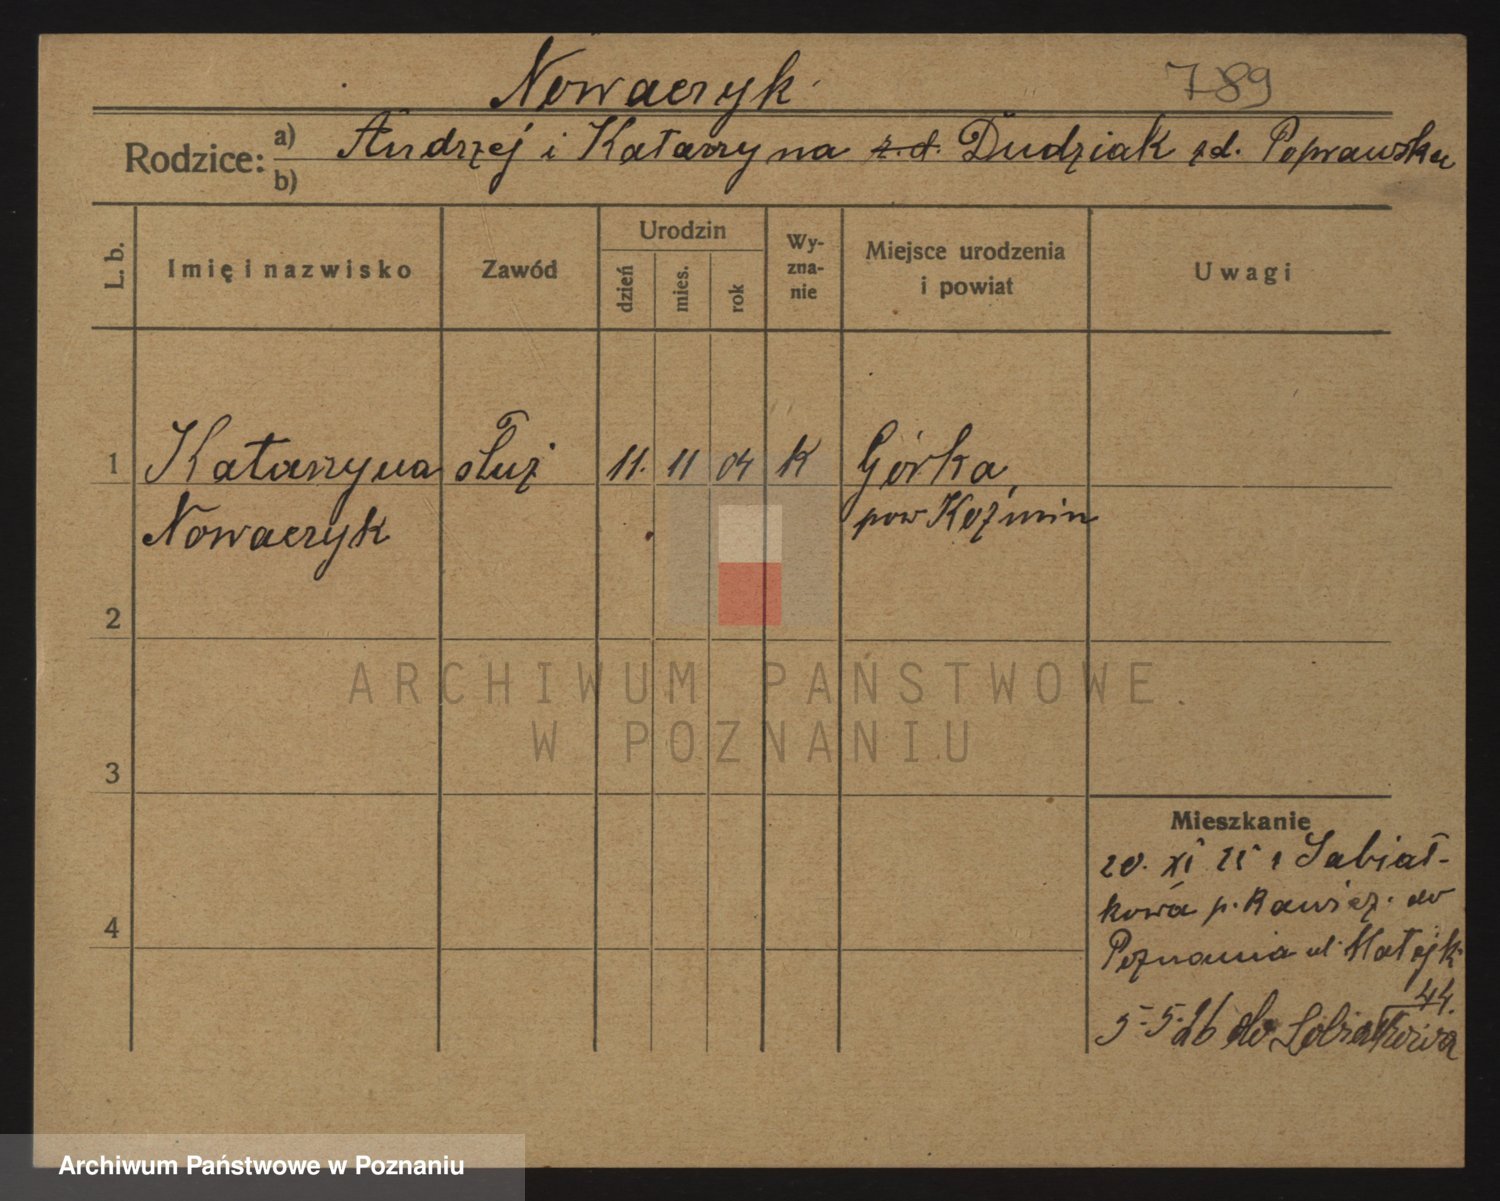 Nowaczyk
789
Rodzice: a) Andrzej i Katarzyna z.d. Dudziak zd. Poprawska
b)
L. b.
Imię i nazwisko
Zawód
Urodzin
dzień
mies.
rok
Wy-
zna-
nie
Miejsce urodzenia
i powiat
Uwagi
1 Katarzyna służ 11. 11 04 K Górka,
Nowaczyk pow Koźmin
2
ARCHIWUM PAŃSTWOWE
W POZNANIU
3
Mieszkanie
20. XI 25 z Sabiał-
kowa p. Rawicz. do
4
Poznania ul. Matejk
44.
5-5.26 do Sobiałkowa
Archiwum Państwowe w Poznaniu